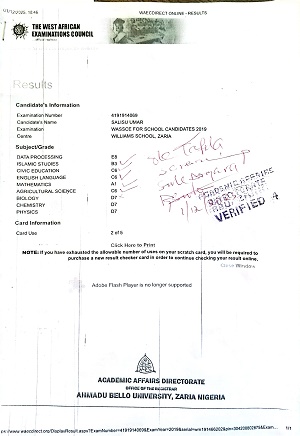 1/12/2025, 10:46
WAECDIRECT ONLINE - RESULTS
THE WEST AFRICAN
EXAMINATIONS COUNCIL
Results
Candidate's Information
Examination Number 4191914069
Candidate's Name SALISU UMAR
Examination WASSCE FOR SCHOOL CANDIDATES 2019
Centre WILLIAMS SCHOOL, ZARIA
Subject/Grade
DATA PROCESSING E8
ISLAMIC STUDIES B3
CIVIC EDUCATION C6
ENGLISH LANGUAGE C6
MATHEMATICS A1
AGRICULTURAL SCIENCE C6
BIOLOGY D7
CHEMISTRY D7
PHYSICS D7
VERIFIED 4
Card Information
Card Use 2 of 5
Click Here to Print
NOTE: If you have exhausted the allowable number of uses on your scratch card, you will be required to
purchase a new result checker card in order to continue checking your result online.
Close Window
Adobe Flash Player is no longer supported
ACADEMIC AFFAIRS DIRECTORATE
OFFICE OF THE REGISTRAR
AHMADU BELLO UNIVERSITY, ZARIA NIGERIA
1/1